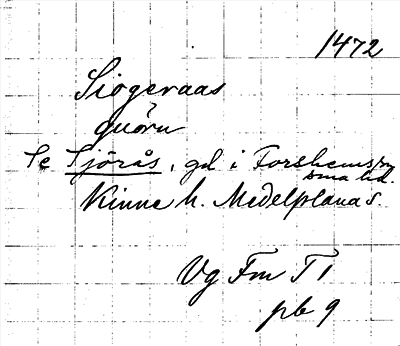 1472
Siogeraas
quörn
Se Sjörås, gd i Forshems sn
sma hd.
Kinne h. Medelplana s.
Vg Fm T 1
pb 9